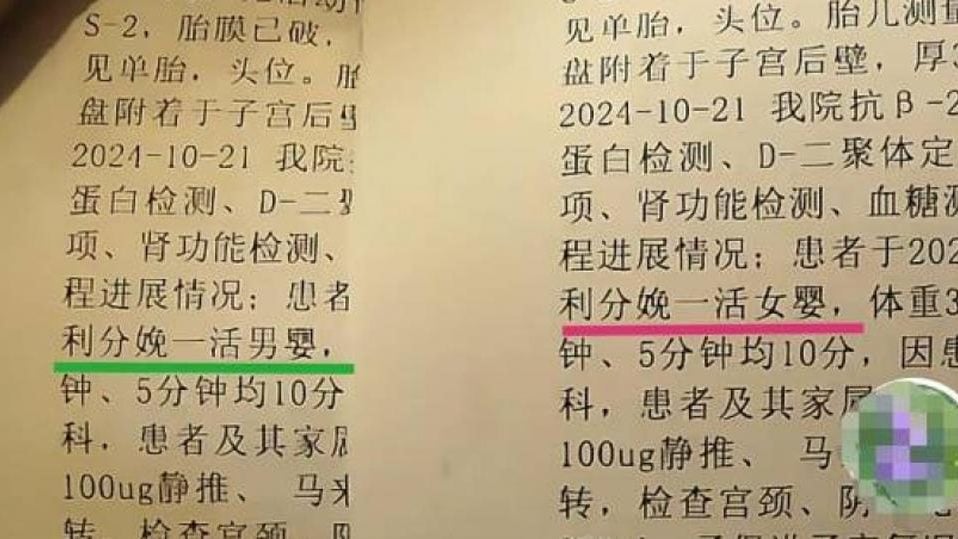 S-2，胎膜已破，
见单胎，头位。胎
盘附着于子宫后壁
2024-10-21 我院
蛋白检测、D-二聚
项、肾功能检测、
程进展情况：患者
利分娩一活男婴，
钟、5分钟均10分
科，患者及其家属
100ug静推、 马来
转，检查宫颈、阴
见单胎，头位。胎儿测量
盘附着于子宫后壁，厚3
2024-10-21 我院抗β-2
蛋白检测、D-二聚体定
项、肾功能检测、血糖测
程进展情况：患者于202
利分娩一活女婴，体重3
钟、5分钟均10分，因患
科，患者及其家属
100ug静推、 马
转，检查宫颈、阴